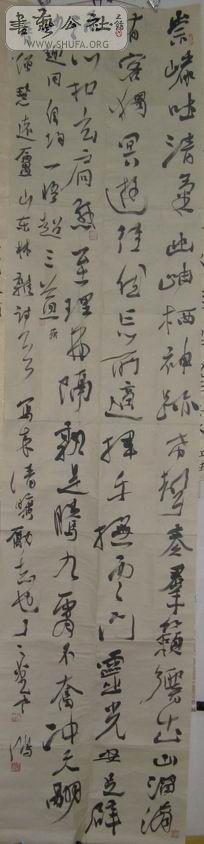 書藝公社
WWW.SHUFA.ORG
崇巖吐清氣幽岫栖神跡希聲奏羣籟響出山溜滴
有客獨冥遊徑然忘所適揮手撫雲門靈光安足辟
心扣玄扃感至理弗隔孰是騰九霄不奮冲天翮
趣同自均一悟超三益
慧遠廬山東林雜詩 寫来清 勵志也 鴻